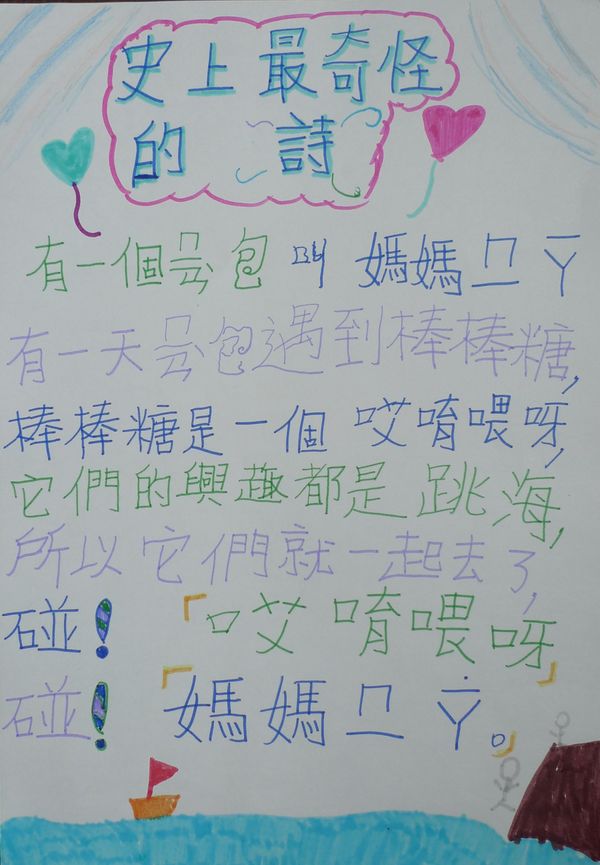 史上最奇怪
的 詩
有一個ㄇㄧㄢˋ包 叫 媽媽ㄇㄧ ㄧㄚ
有一天ㄇㄧㄢˋ包遇到棒棒糖,
棒棒糖是一個 哎唷喂呀,
它們的興趣都是 跳海,
所以它們就一起去了,
碰!「哎唷喂呀」
碰!「媽媽ㄇㄧ ˙ㄧㄚ。」